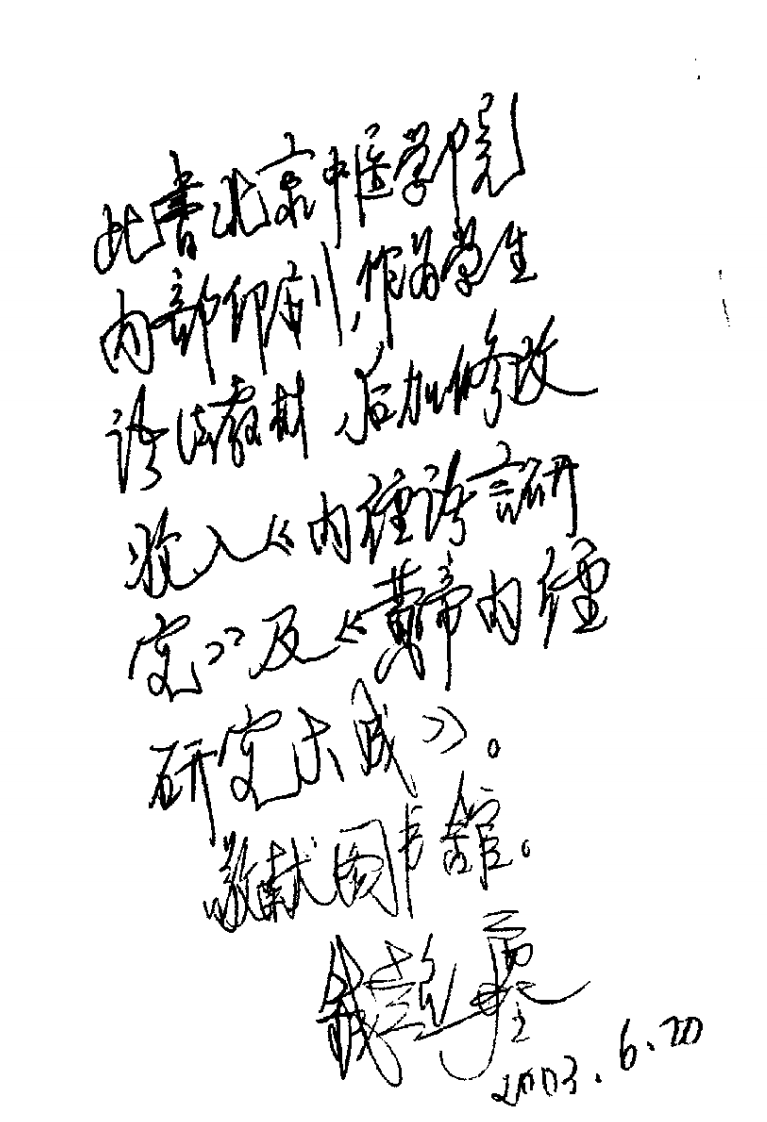 此書北京中医学院
内部印刷,作为学生
语法教材,后加修改
收入《内经语言研
究》及《黄帝内经
研究大成》。
敬献图书馆。
钱超尘
2003.6.20